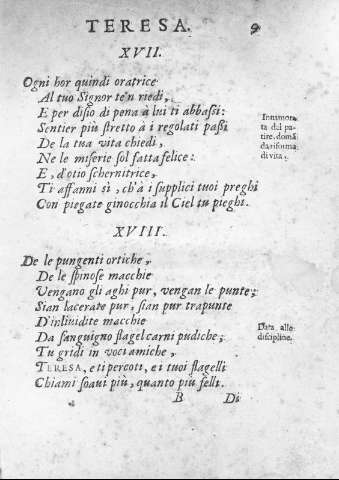 TERESA. 9
XVII.
Ogni hor quindi oratrice
Al tuo Signor te'n riedi,
E per disio di pena à lui ti abbassi:
Sentier più stretto à i regolati passi
De la tua vita chiedi,
Ne le miserie sol fatta felice:
E, d'otio schernitrice,
Ti affanni sì, ch'à i supplici tuoi preghi
Con piegate ginocchia il Ciel tu pieghi.
Innamora
ta del pa-
tire. domã
da riforma
di vita.
XVIII.
De le pungenti ortiche,
De le spinose macchie
Vengano gli aghi pur, vengan le punte;
Sian lacerate pur, sian pur trapunte
D'inliuidite macchie
Da sanguigno flagel carni pudiche;
Tu gridi in voci amiche,
TERESA, e ti percoti, e i tuoi flagelli
Chiami soaui più, quanto più felli.
Data alle
discipline.
B Di